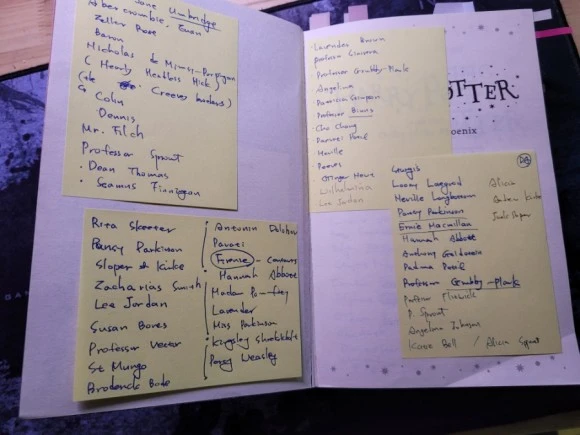 Jane Umbridge
Abercrombie, Euan
Zeller Rose
Baron
Nicholas de Mimsy-Porpington
(Nearly Headless Nick)
Creevey
Colin
Dennis
Mr. Filch
Professor Sprout
· Dean Thomas
· Seamus Finnegan
Rita Skeeter
Pansy Parkinson
Sloper & Kirke
Zacharias Smith
Lee Jordan
Susan Bones
Professor Vector
St Mungo
Broderick Bode
Antonin Dolohov
Parvati
Firenze -
Hannah Abbott
Madam
Lavender
Mrs Parkinson
Kingsley Shacklebolt
Percy Weasley
· Lavender Brown
Professor Sinistra
Professor Grubbly-Plank
Angelina
Patricia Stimpson
Professor Binns
· Cho Chang
Parvati Patil
Neville
Peeves
Wilhelmina
Lee Jordan
POTTER
oenix
DA
Luna Lovegood
Neville Longbottom
Pansy Parkinson
Ernie Macmillan
Hannah Abbott
Anthony Goldstein
Padma Patil
Professor Grubbly-Plank
Professor Flitwick
P. Sprout
Angelina Johnson
Katie Bell / Alicia Spinnet
Alicia